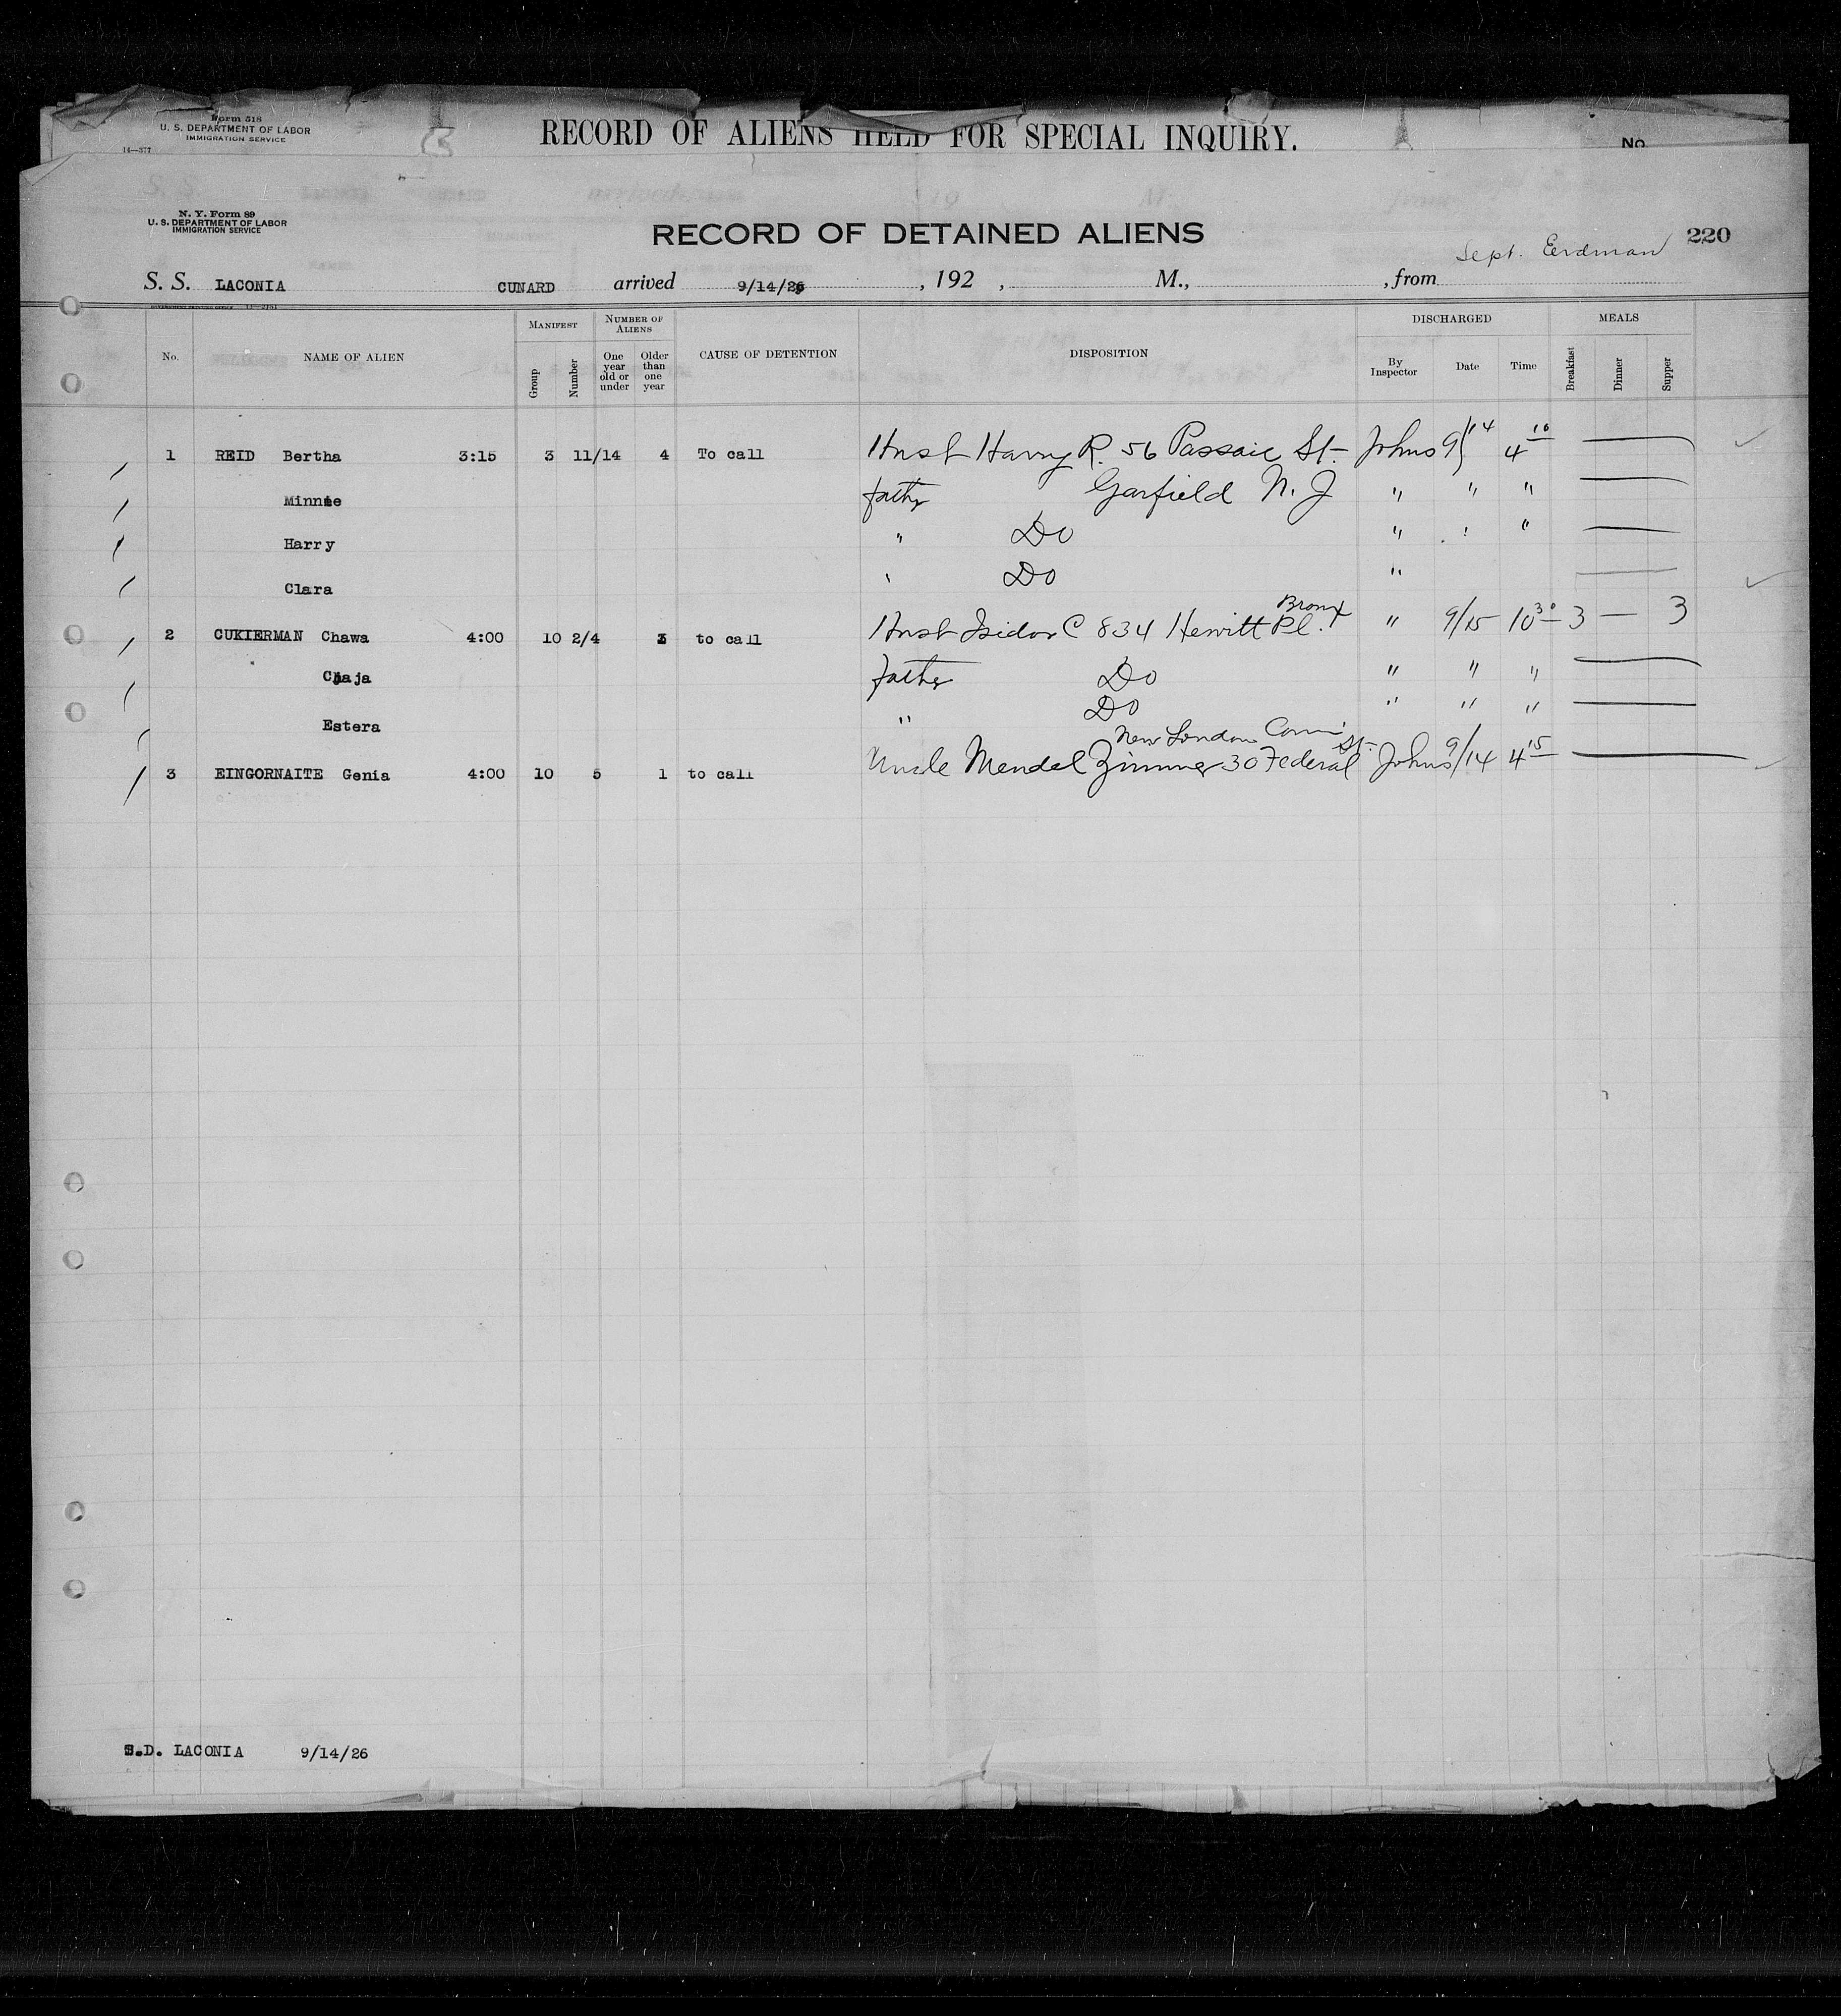 Form 518
U. S. DEPARTMENT OF LABOR
IMMIGRATION SERVICE
14—377
RECORD OF ALIENS HELD FOR SPECIAL INQUIRY.
No
N. Y. Form 89
U. S. DEPARTMENT OF LABOR
IMMIGRATION SERVICE
RECORD OF DETAINED ALIENS
220
Sept. Erdman
S. S. LACONIA CUNARD arrived 9/14/26, 192 , M., , from
No. NAME OF ALIEN MANIFEST Group Number NUMBER OF ALIENS One year old or under Older than one year CAUSE OF DETENTION DISPOSITION DISCHARGED By Inspector Date Time MEALS Breakfast Dinner Supper
1 REID Bertha 3:15 3 11/14 4 To call Husb Harry R. 56 Passaic St- Johns 9/14 4 10
Minnie father Garfield N. J " " "
Harry " Do " " "
Clara " Do "
Bronx
2 CUKIERMAN Chawa 4:00 10 2/4 3 to call Husb Isidor C 834 Hewitt Pl. " 9/15 10 30 3 — 3
Chaja father Do " " "
Estera " Do " " "
New London Conn
3 EINGORNAITE Genia 4:00 10 5 1 to call Uncle Mendel Zimmer 30 Federal St- Johns 9/14 4 15
S.D. LACONIA 9/14/26